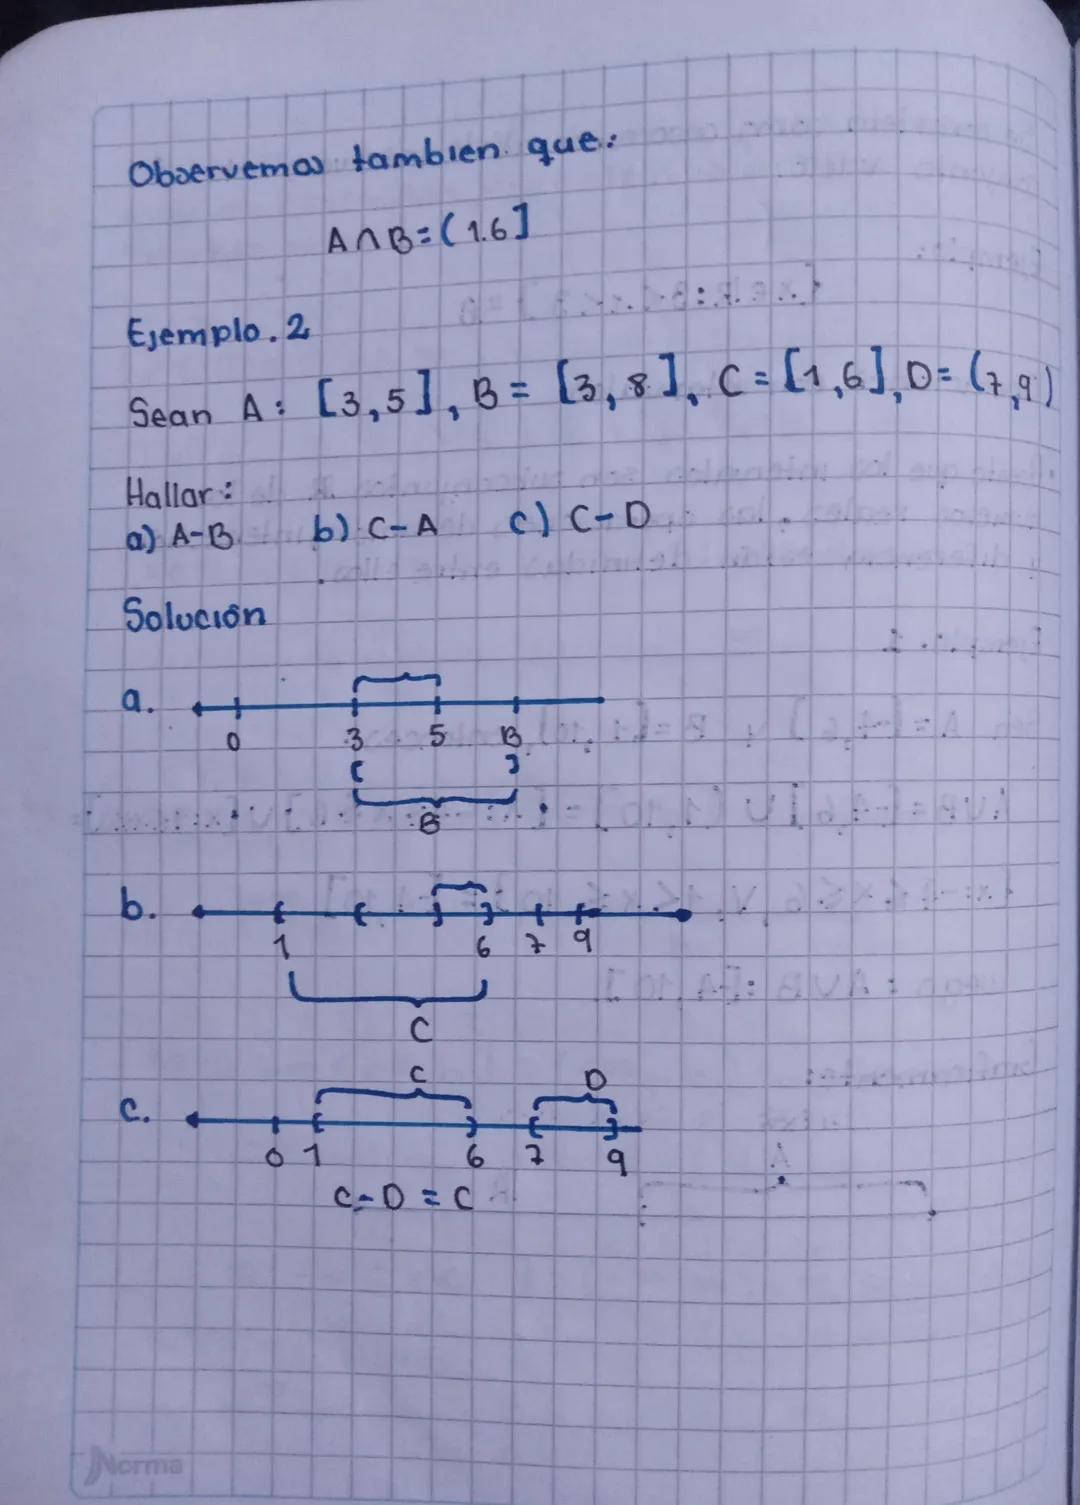 Observemos tambien que:
A∩B=(1.6]
Ejemplo.2
Sean A: [3,5], B= [3,8], C=[1,6], D= (7,9)
Hallar:
a) A-B b) C-A c) C-D
Solución
a.
0 3 5 B
[ ]
B
b.
1 6 7 9
C
C D
c.
0 1 6 7 9
C-D = C
Norma